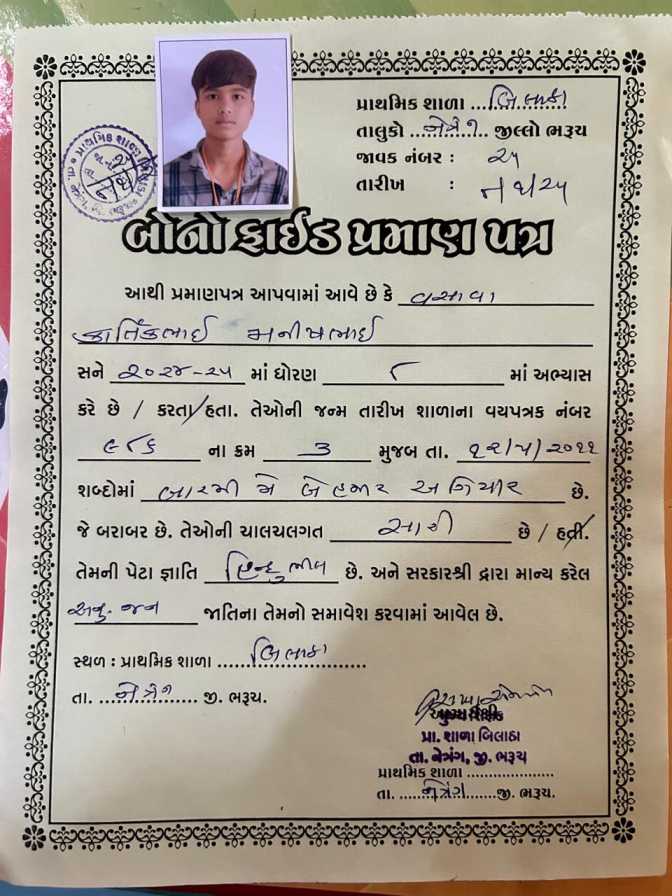 પ્રાથમિક શાળા ...બિલાઠા
તાલુકો ...નેત્રંગ.. જીલ્લો ભરૂચ
જાવક નંબર : ૨૫
તારીખ :
બોનોફાઈડ પ્રમાણ પત્ર
આથી પ્રમાણપત્ર આપવામાં આવે છે કે વસાવા
કાર્તિકભાઈ મનીષભાઈ
સને ૨૦૨૪-૨૫ માં ધોરણ ૮ માં અભ્યાસ
કરે છે / કરતા/હતા. તેઓની જન્મ તારીખ શાળાના વયપત્રક નંબર
૯૮૬ ના ક્રમ ૩ મુજબ તા. ૧૨/૫/૨૦૧૧
શબ્દોમાં બારમી મે બે હજાર અગિયાર છે.
જે બરાબર છે. તેઓની ચાલચલગત સારી છે / હતી.
તેમની પેટા જ્ઞાતિ હિન્દુ ભીલ છે. અને સરકારશ્રી દ્વારા માન્ય કરેલ
અનુ. જન જાતિના તેમનો સમાવેશ કરવામાં આવેલ છે.
સ્થળ : પ્રાથમિક શાળા ...બિલાઠા...
તા. ...નેત્રંગ... જી. ભરૂચ.
પ્રા. શાળા બિલાઠા
તા. નેત્રંગ, જી. ભરૂચ
પ્રાથમિક શાળા ...................
તા. ......નેત્રંગ.......જી. ભરૂચ.